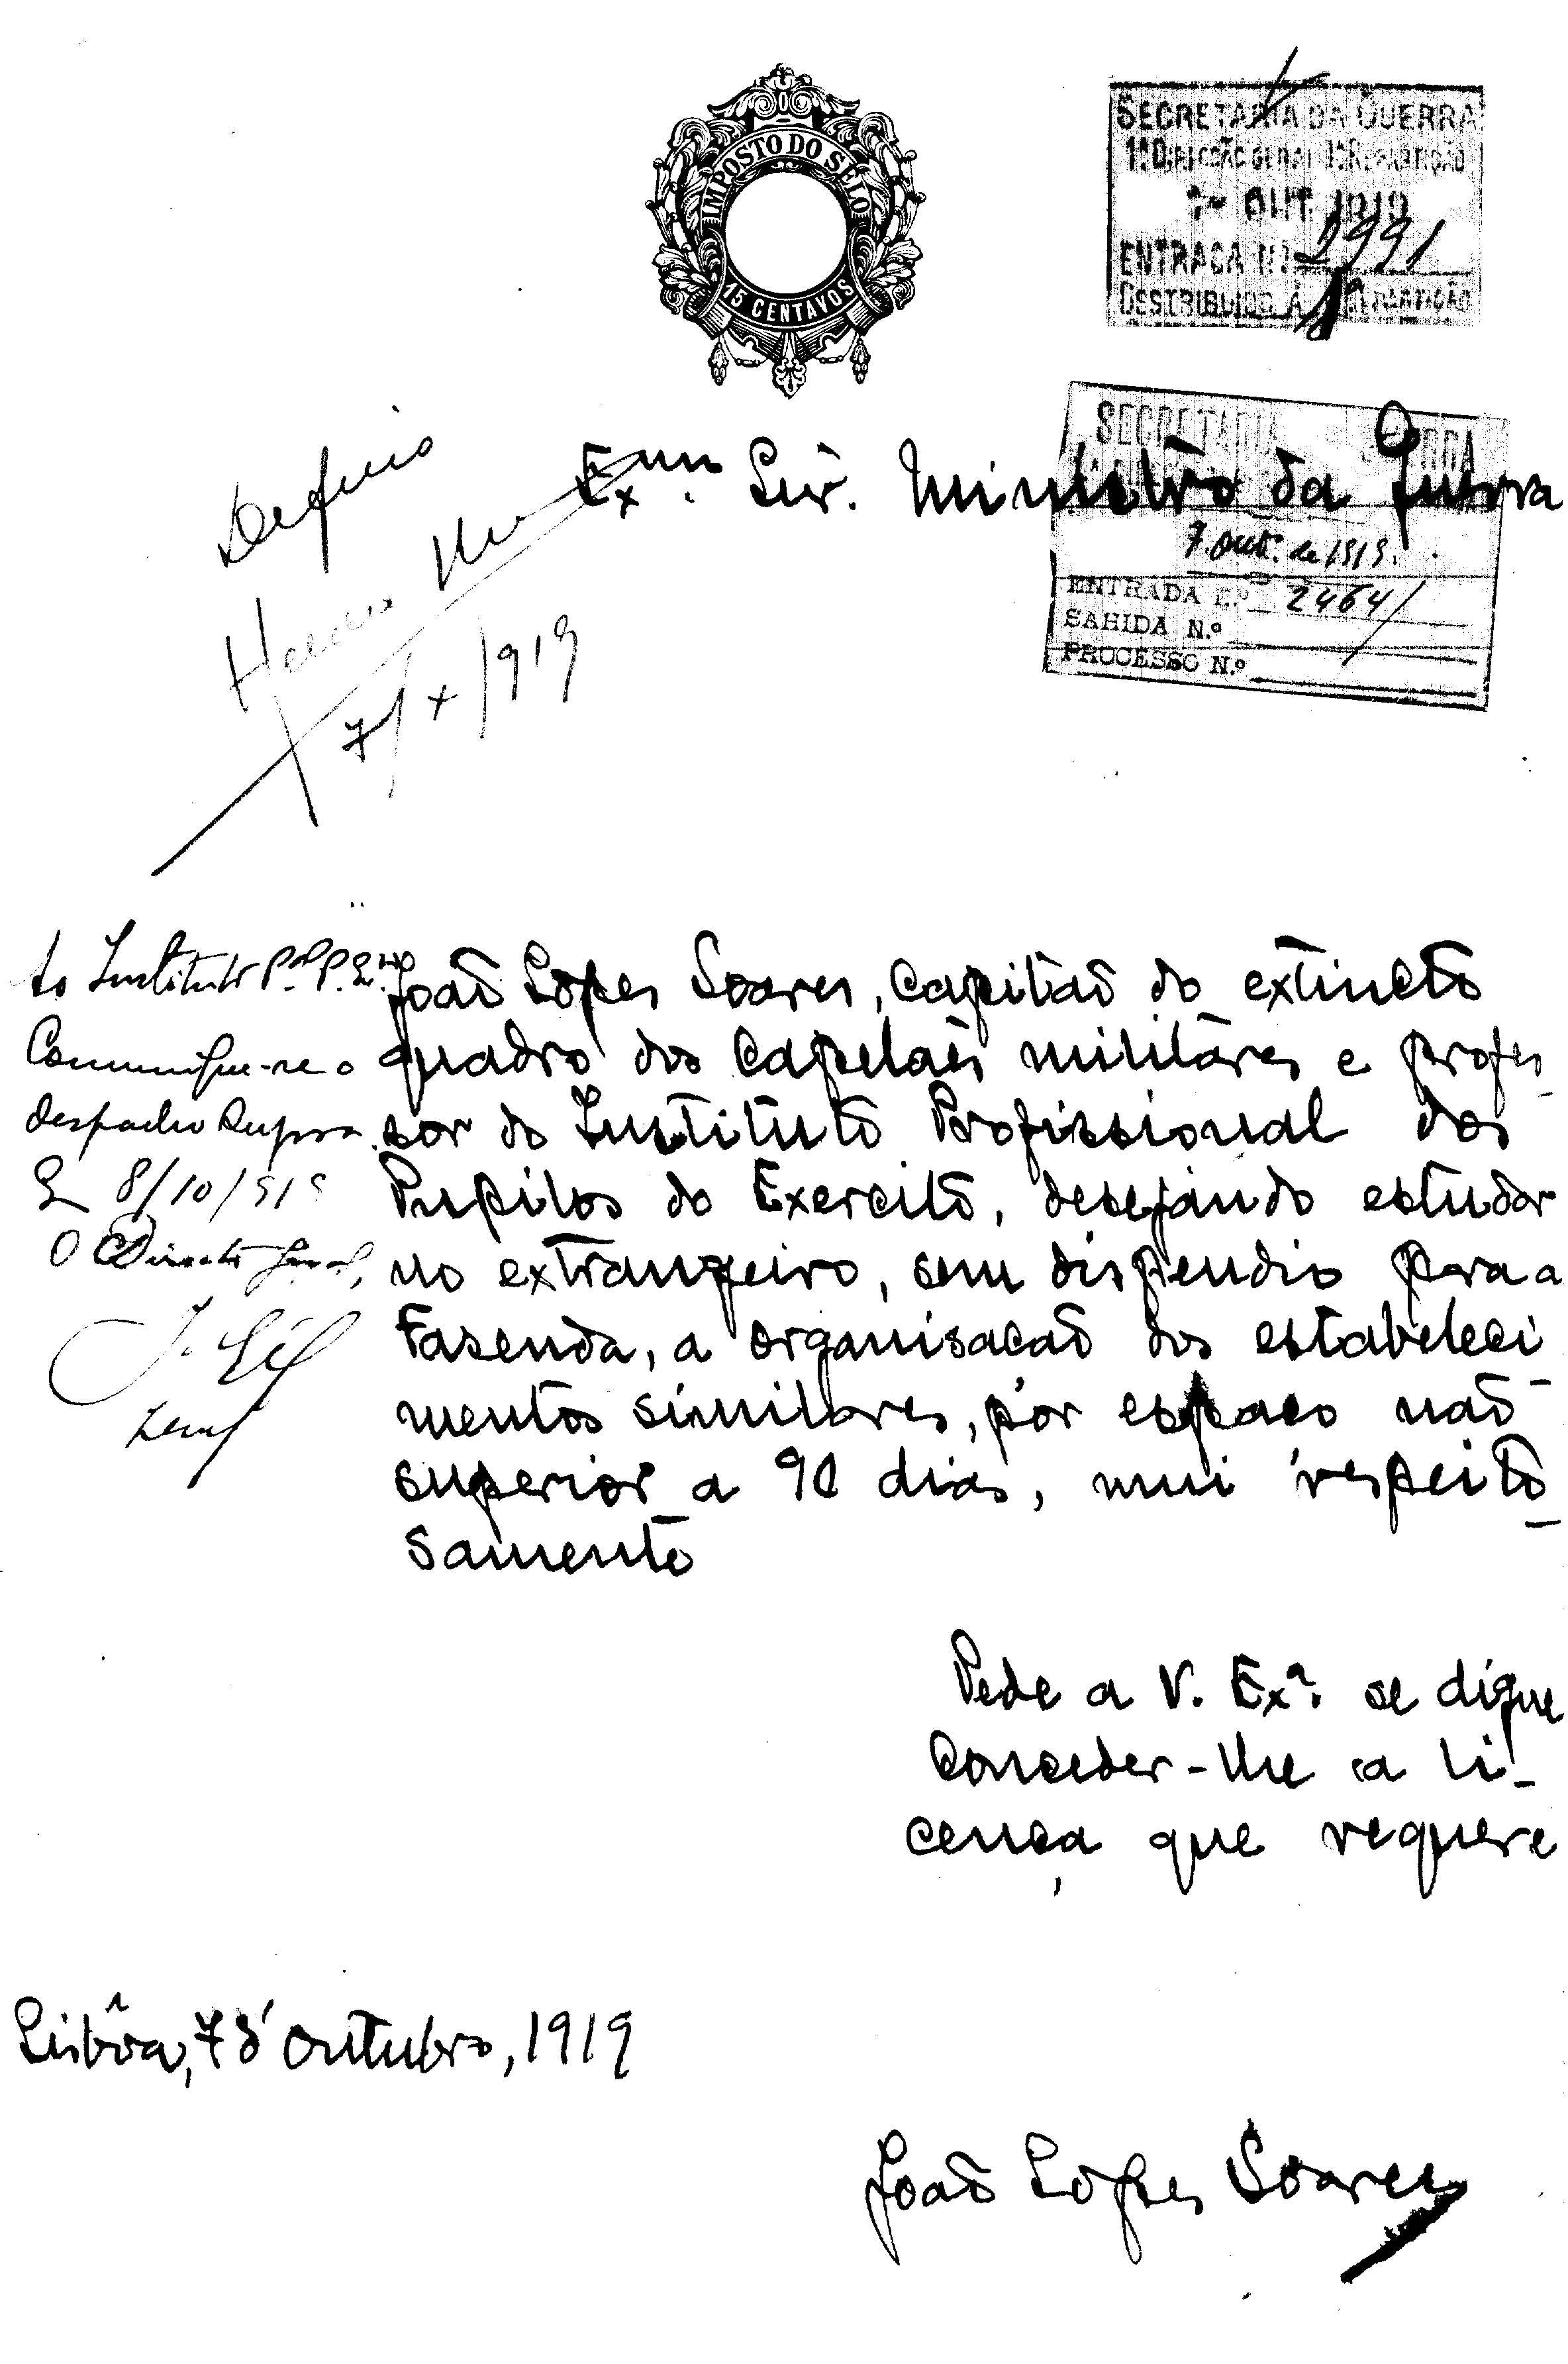 IMPOSTO DO SELO
15 CENTAVOS
SECRETARIA DA GUERRA
1ª DIRECÇÃO GERAL 1ª REPARTIÇÃO
7- OUT. 1919
ENTRADA N.º 2991
DESTRIBUIDO À 1ª REPARTIÇÃO
SECRETARIA GUERRA
7. Out. de 1919.
ENTRADA N.º 2464
SAHIDA N.º
PROCESSO N.º
Exmo. Snr. Ministro da Guerra
Defiro
7/X/1919
Ao Instituto P.al P. E.to
Comunique-se o
despacho supra.
8/10/919
O Director Geral,
João Lopes Soares, capitão do extincto
quadro dos capelães militares e profes
sor do Instituto Profissional dos
Pupilos do Exercito, desejando estudar
no extrangeiro, sem dispendio para a
Fasenda, a organisação dos estabeleci_
mentos similares, por espaço não
superior a 90 dias, mui respeito_
samente
Pede a V. Exª. se digne
conceder-lhe a li_
cença que requere
Lisbôa, 7 d' outubro, 1919
João Lopes Soares